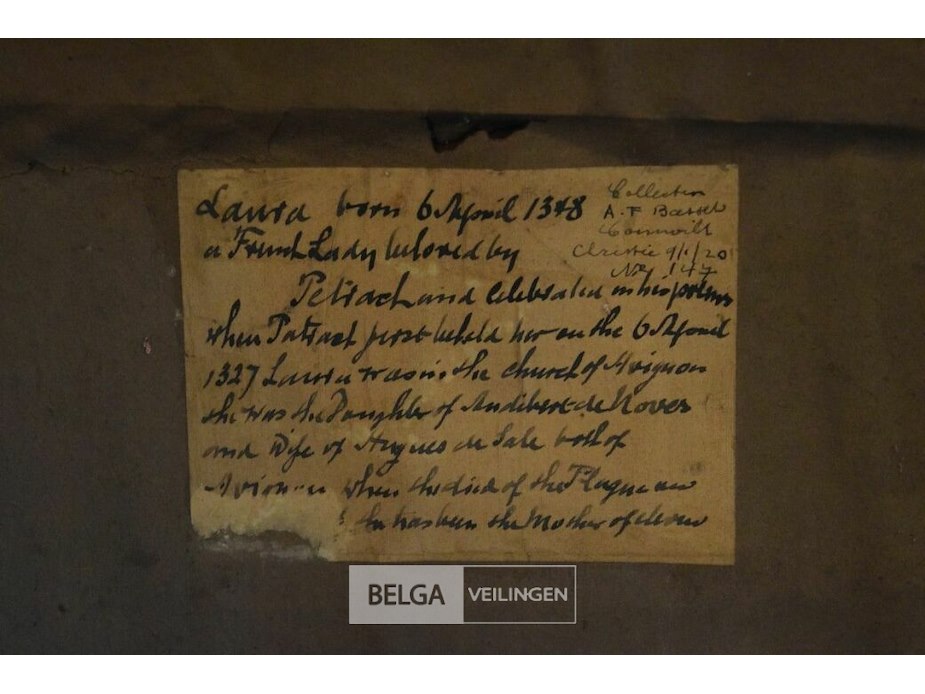 Laura born 6 April 1348
a French Lady beloved by
Petrach and celebrated in his poems
when Patrach first beheld her on the 6 April
1327 Laura was in the church of Avignon
she was the Daughter of Andibert de Noves
and Wife of Hugues de Sale both of
when she died of the Plague
she has been the Mother of eleven
Collection
A.F Basset
Cornwill
Christie 9/1/20
No 147
BELGA VEILINGEN